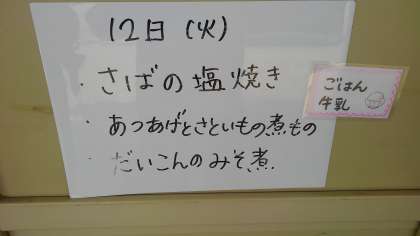 12日(火)
・さばの塩焼き
・あつあげとさといもの煮もの
・だいこんのみそ煮
ごはん
牛乳